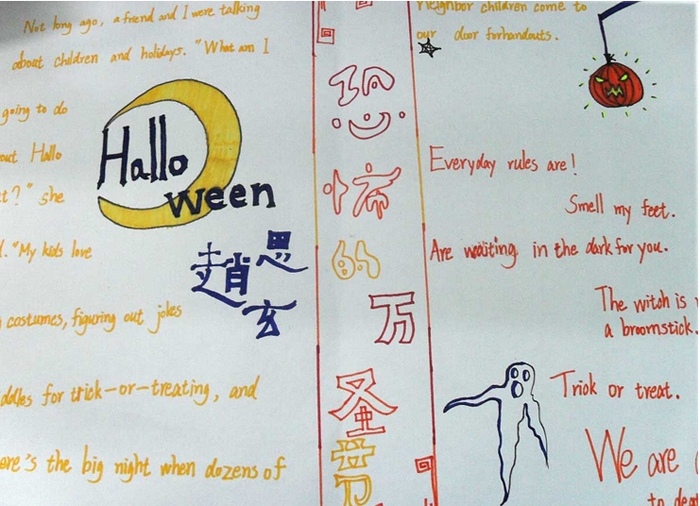 Not long ago, a friend and I were talking
about children and holidays. "What am I
going to do
out Hallo
t?" she
d. "My kids love
costumes, figuring out jokes
ddles for trick-or-treating, and
ere's the big night when dozens of
Hallo
ween
趙思玄
恐
怖
的
万
圣
节
neighbor children come to
our door forhandouts.
Everyday rules are!
Smell my feet.
Are waiting in the dark for you.
The witch is
a broomstick.
Trick or treat.
We are